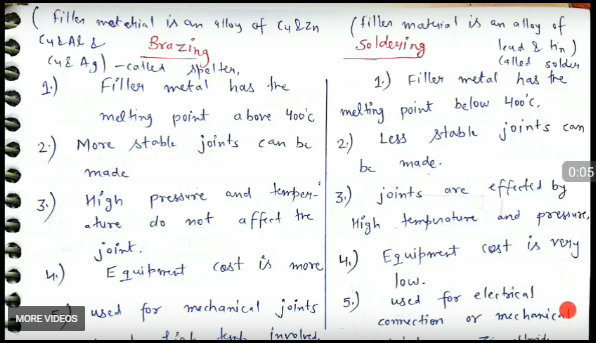 ( filler material is an alloy of Cu & Zn
Cu & Al &
Cu & Ag) – called spelter.
Brazing
1.) Filler metal has the
melting point above 400°c
2.) More stable joints can be
made
3.) High pressure and temper-
ature do not affect the
joint.
4.) Equipment cost is more
5.) used for mechanical joints
high temp involved.
( filler material is an alloy of
lead & tin )
called solder
Soldering
1.) Filler metal has the
melting point below 400°c.
2.) Less stable joints can
be made.
3.) joints are effected by
High temperature and pressure.
4.) Equipment cost is very
low.
5.) used for electrical
connection or mechanical
0:05
MORE VIDEOS